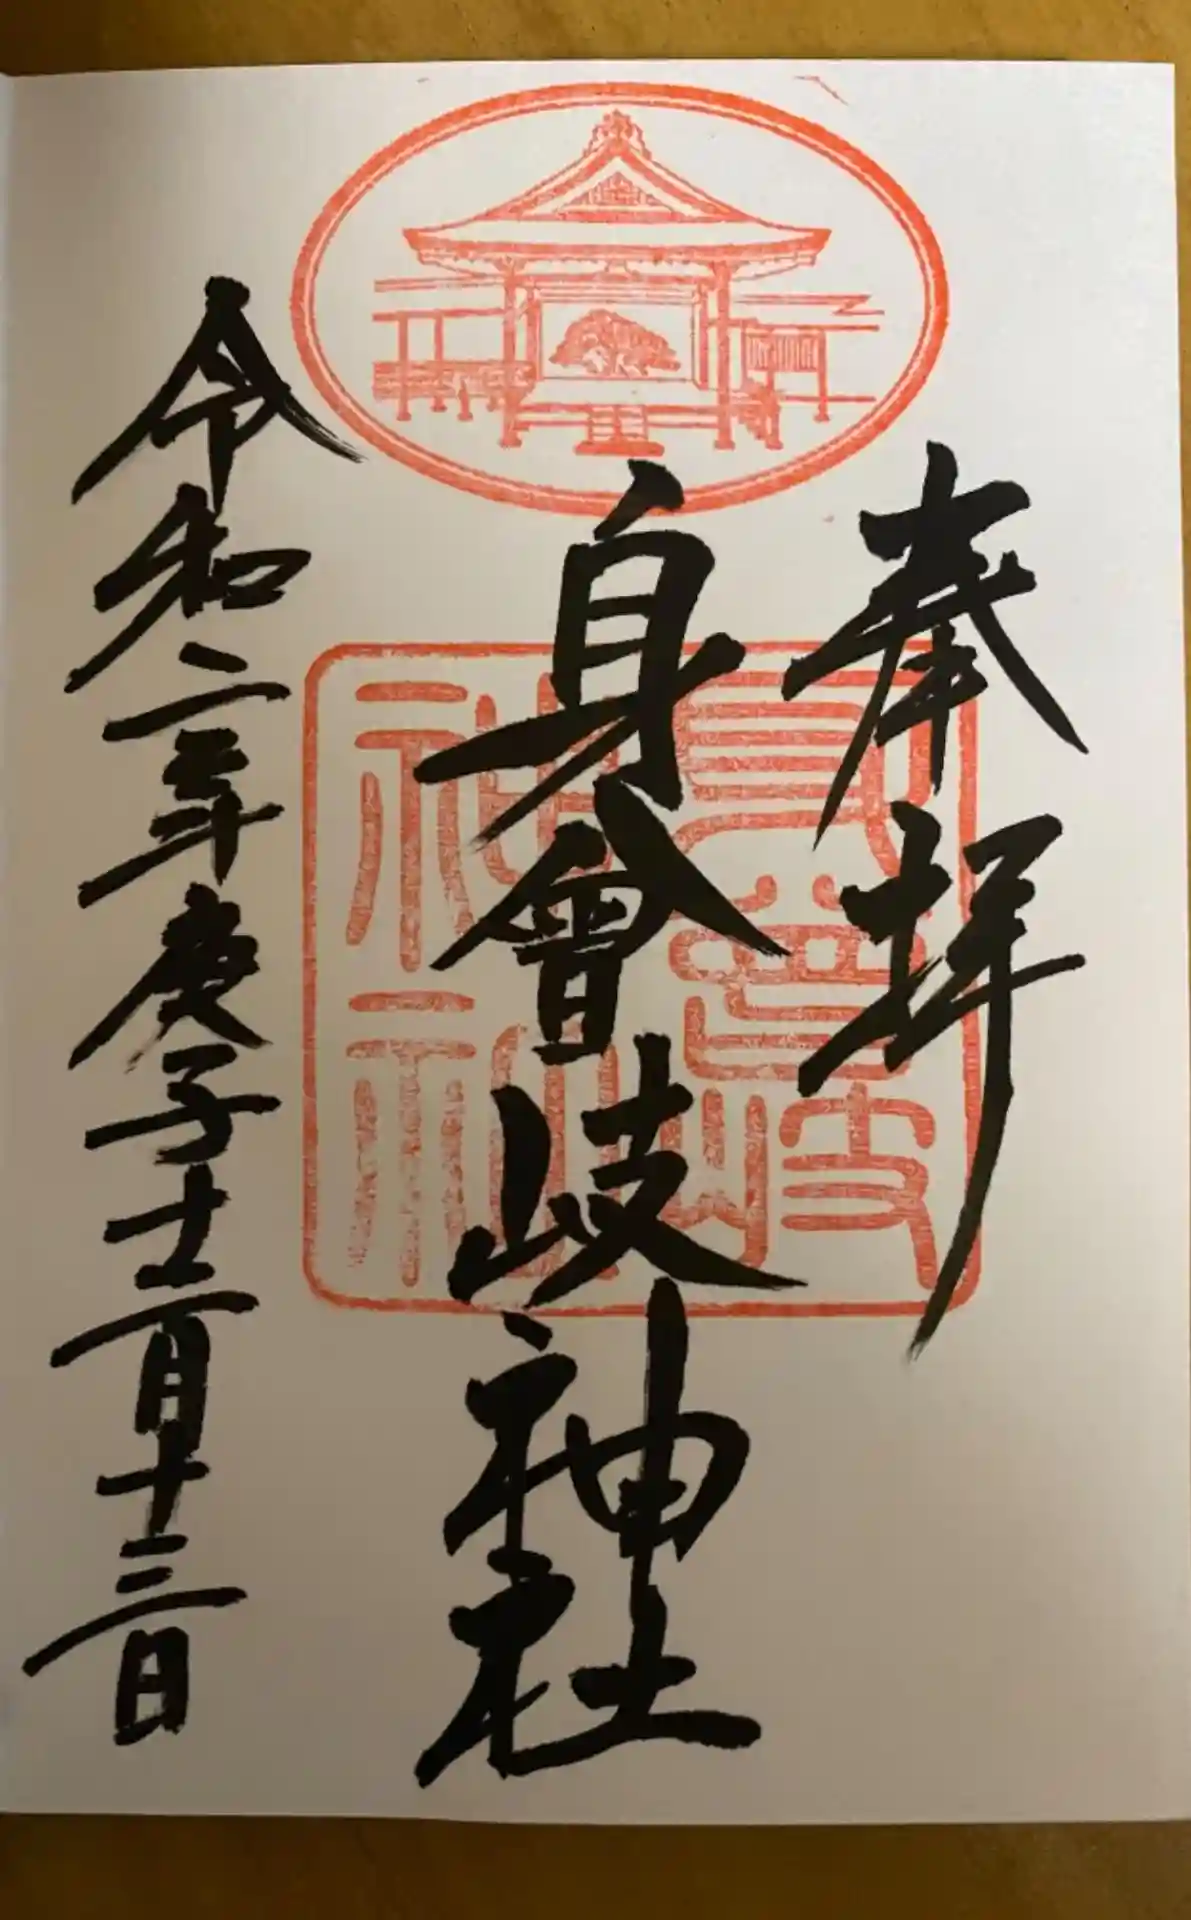 奉拝
身曾岐神社
令和二年庚子十二月十三日
身曾岐
神社